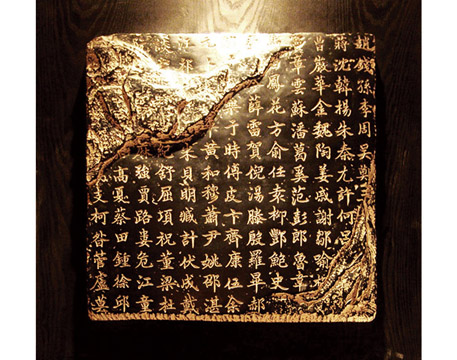 趙錢孫李周吳鄭
蔣沈韓楊朱秦尤許何呂
嚴華金魏陶姜戚謝鄒喻
章雲蘇潘葛奚范彭郎魯韋
鳳花方俞任袁柳酆鮑史
薛雷賀倪湯滕殷羅畢郝
于時傅皮卞齊康伍余
黃和穆蕭尹姚邵湛
米貝明臧計伏成戴
舒屈項祝董梁杜
強賈路婁危江童
高夏蔡田鍾徐邱
支柯昝管盧莫